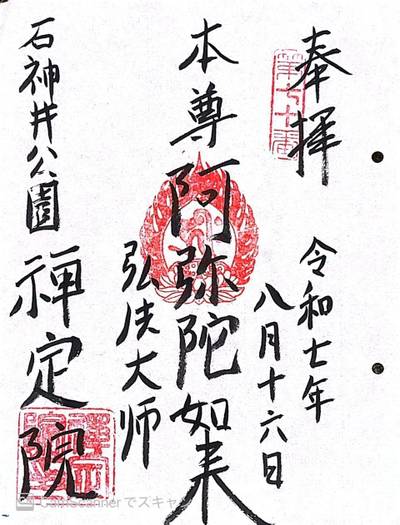 奉拝
第七十番
令和七年
八月十六日
本尊阿弥陀如来
弘法大师
石神井公園
禅定院
CamScannerでスキャン